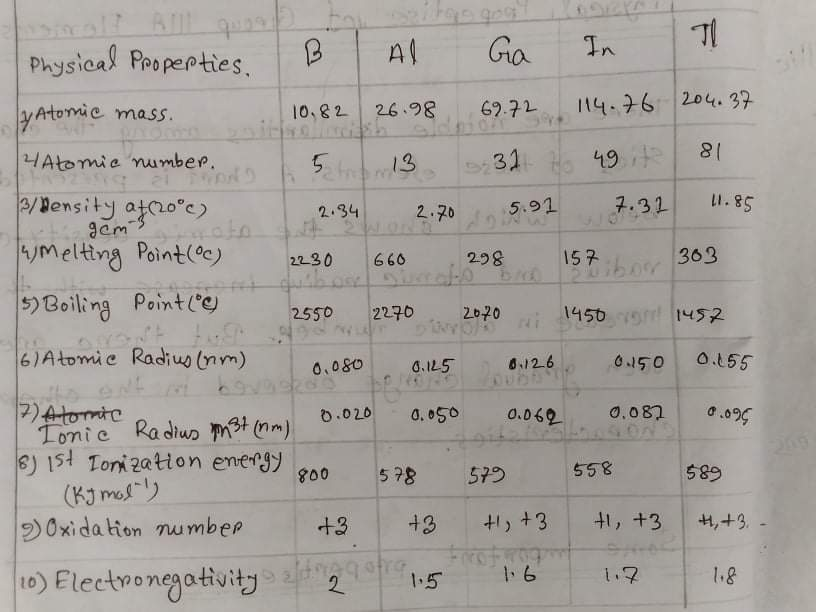 Physical Properties. B Al Ga In Tl
1) Atomic mass. 10.82 26.98 69.72 114.76 204.37
2) Atomic number. 5 13 31 49 81
3) Density at (20°c) 2.34 2.70 5.91 7.31 11.85
gcm⁻³
4) Melting Point (°c) 2230 660 298 157 303
5) Boiling Point (°c) 2550 2270 2070 1450 1457
6) Atomic Radius (nm) 0.080 0.125 0.126 0.150 0.155
7) Atomic
Ionic Radius m³⁺ (nm) 0.020 0.050 0.062 0.081 0.095
8) 1st Ionization energy 800 578 579 558 589
(KJmol⁻¹)
9) Oxidation number +3 +3 +1, +3 +1, +3 +1, +3.
10) Electronegativity 2 1.5 1.6 1.7 1.8